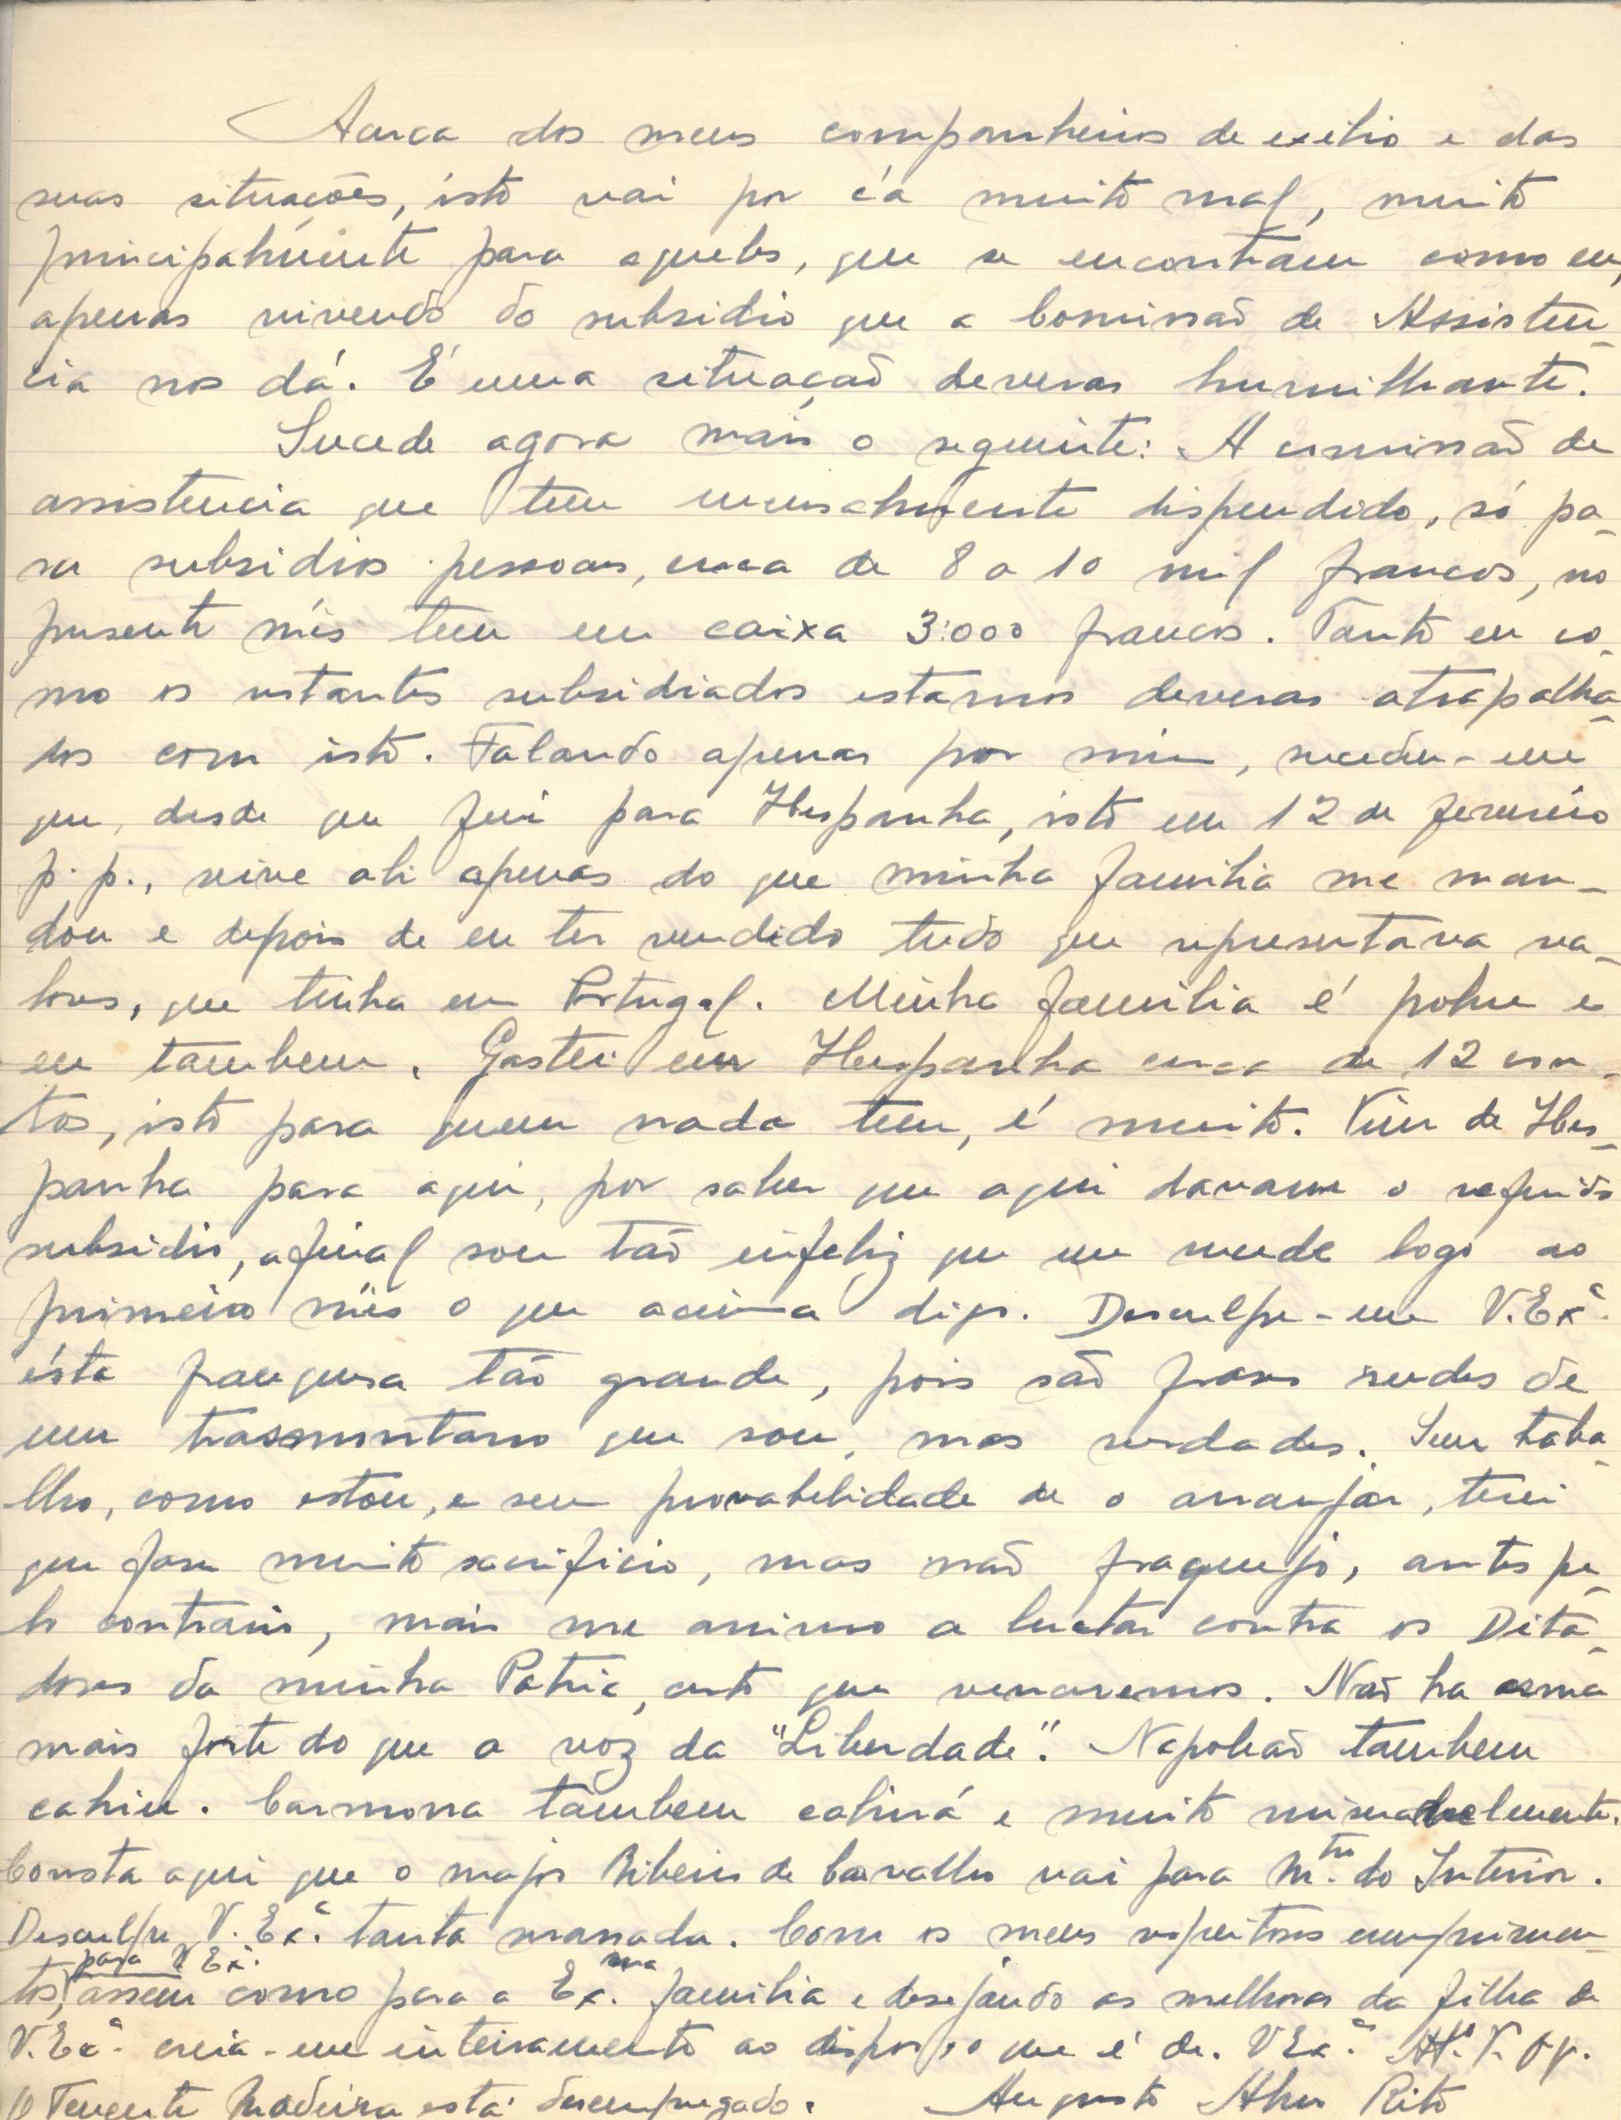 Acerca dos meus companheiros de exilio e das
suas situações, isto vai por cá muito mal, muito
principalmente para aqueles, que se encontram como eu,
apenas vivendo do subsidio que a Comissão de Assisten-
cia nos dá. É uma situação deveras humilhante.
Sucede agora mais o seguinte: A comissão de
assistencia que tem mensalmente dispendido, só pa-
ra subsidios pessoais, cerca de 8 a 10 mil francos, no
presente mês tem em caixa 3:000 francos. Tanto eu co-
mo os restantes subsidiados estamos deveras atrapalha-
dos com isto. Falando apenas por mim, sucedeu-me
que, desde que fui para Hespanha, isto em 12 de fevereiro
p. p., vive ali apenas do que minha familia me man-
dou e depois de eu ter vendido tudo que representava va-
lores, que tinha em Portugal. Minha familia é pobre e
eu tambem. Gastei em Hespanha cerca de 12 con-
tos, isto para quem nada tem, é muito. Vim de Hes-
panha para aqui, por saber que aqui davam o referido
subsidio, afinal sou tão infeliz que me sucede logo ao
primeiro mês o que acima digo. Desculpe-me V. Exª.
ésta franquesa tão grande, pois são frases rudes de
um trasmontano que sou, mas verdades. Sem traba-
lho, como estou, e sem provabelidade de o arranjar, terei
que faser muito sacrificio, mas não fraquejo, antes pe-
lo contrario, mais me animo a luctar contra os Dita-
dores da minha Patria, certo que venceremos. Não ha arma
mais forte do que a voz da "Liberdade". Napoleão tambem
cahiu. Carmona tambem cahirá e muito miseravelmente.
Consta aqui que o major Ribeiro de Carvalho vai para M.tro do Interior.
Desculpe V. Exª. tanta massada. Com os meus respeitosos cumprimen-
tos, para V Exª. assim como para a Ex.ma familia e desejando as melhoras da filha de
V. Exª. creia-me inteiramente ao dispor, o que é de. V Exª. Att.º V.
O Tenente Madeira está desempregado. Augusto Alves Rito